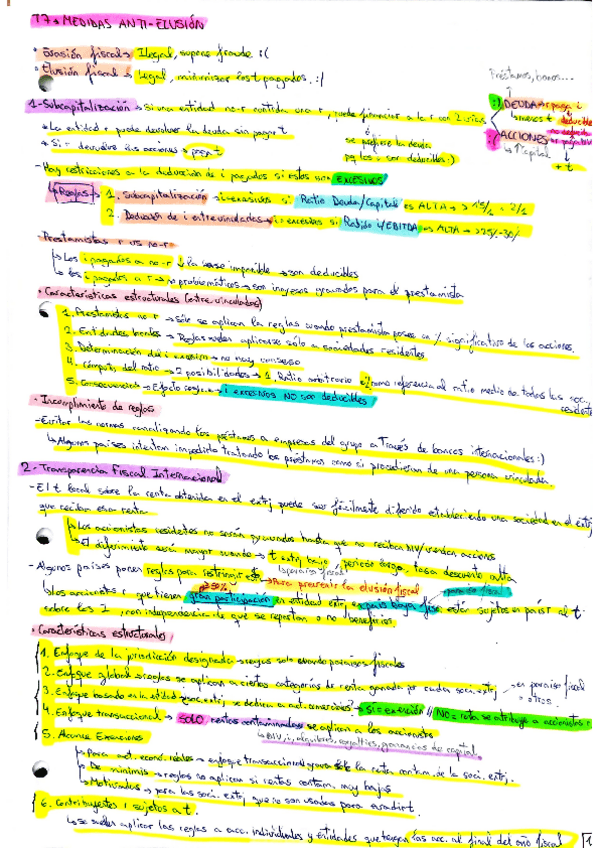 T7. MEDIDAS ANTI-ELUSIÓN
· Evasión fiscal → Ilegal, supone fraude :(
· Elusión fiscal → Legal, minimizar los t pagados. :)
Préstamos, bonos...
1-Subcapitalización → Si una entidad no-r controla una r, puede financiar a la r con 2 vías
:) DEUDA → r paga i
menos t deducibles
:( ACCIONES
↳ ↑ Capital
+ t
· La entidad r puede devolver la deuda sin pagar t
· Si = devuelve sus acciones → paga t
se prefiere la deuda
pq los i son deducibles :)
- Hay restricciones a la deducción de i pagados si estos son EXCESIVOS
↳ Reglas
1. Subcapitalización → i excesivos si Ratio Deuda/Capital es ALTA → > 1'5/1 - 2/1
2. Deducción de i entre vinculados → i excesivos si Ratio i/EBITDA es ALTA → > 25%-30%
· Prestamistas r vs no-r
↳ Los i pagados a no-r ↓ la base imponible → son deducibles
↳ Los i pagados a r → no problemáticos → son ingresos gravados para el prestamista
· Características estructurales (entre vinculados)
1. Prestamistas no r → sólo se aplican la reglas cuando prestamista posee un % significativo de las acciones.
2. Entidades → Reglas suelen aplicarse sólo a sociedades residentes.
3. Determinación del i excesivo → no hay consenso
4. Cómputo del ratio → 2 posibilidades → 1. Ratio arbitrario 2. como referencia al ratio medio de todas las soc. residentes
5. Consecuencias → Efecto reglas → i excesivos NO son deducibles
· Incumplimiento de reglas
- Evitar las normas canalizando los préstamos a empresas del grupo a través de bancos internacionales :)
↳ Algunos países intentan impedirlo tratando los préstamos como si procedieran de una persona vinculada.
2- Transparencia Fiscal Internacional
- El t local sobre la renta obtenida en el extj puede ser fácilmente diferido estableciendo una sociedad en el extj
que reciba esa renta
↳ Los accionistas residentes no serán gravados hasta que no reciban DIV/vendan acciones
↳ El diferimiento será mayor cuando → t extj bajo, periodo largo, tasa descuento alta
↳ paraíso fiscal
- Algunos países ponen reglas para restringir esto → Para prevenir la elusión fiscal
≥50%
paraíso fiscal
↳ los accionistas r que tienen gran participación en entidad extj en país baja fisc. están sujetos en país r al t
sobre los I, con independencia de que se repartan o no beneficios
· Características estructurales
1. Enfoque de la jurisdicción designada → reglas solo cuando paraísos fiscales
2. Enfoque global → reglas se aplican a ciertas categorías de renta ganada por cada soc. extj
en paraíso fiscal
u otros.
3. Enfoque basado en la entidad → soc. extj se dedica a act. comerciales → Si = exención // NO = rota. se atribuye a accionistas r
4. Enfoque transaccional → SOLO rentas contaminadas se aplican a los accionistas
↳ DIV, i, alquileres, royalties, ganancias de capital.
5. Alcance Exenciones
↳ Para act. econ. reales → enfoque transaccional grava la renta contam. de la soci. extj.
↳ De minimis → reglas no aplican si rentas contam. muy bajas
↳ Motivados → para las soci. extj que no son usadas para evadir t.
6. Contribuyentes / sujetos a t.
↳ se suelen aplicar las reglas a acc. individuales y entidades que tengan las acc. al final del año fiscal
1